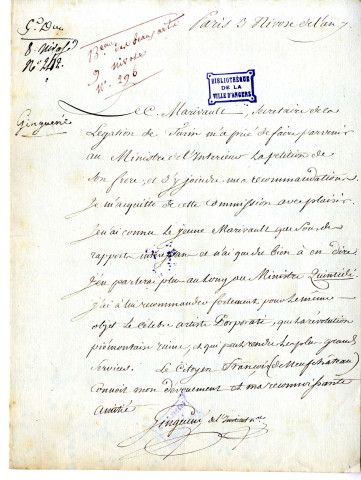 Gal Div
8 Nivose
No 242
13eme des beaux arts
9 nivose
No. 296
Paris 3 Nivose de l'an 7.
BIBLIOTHÈQUE
DE LA
VILLE D'ANGERS
Ginguené
Le C. Marivault, Secretaire de la
Legation de Turin m'a prié de faire parvenir
au Ministre de l'Interieur la petition de
son frere, et d'y joindre ma recommandation.
Je m'acquitte de cette Commission avec plaisir.
Je n'ai connu le jeune Marivault que sous des
rapports et n'ai que du bien à en dire
J'en parlerai plus au long au Ministre
J'ai à lui recommander fortement pour le meme
objet le Celebre artiste Porporati, que la révolution
piémontaise ruine, et qui peut rendre les plus grands
Services. Le Citoyen François (de Neufchateau)
connoit mon devouement et ma reconnoissante
amitié
Ginguené de l'Institut nal